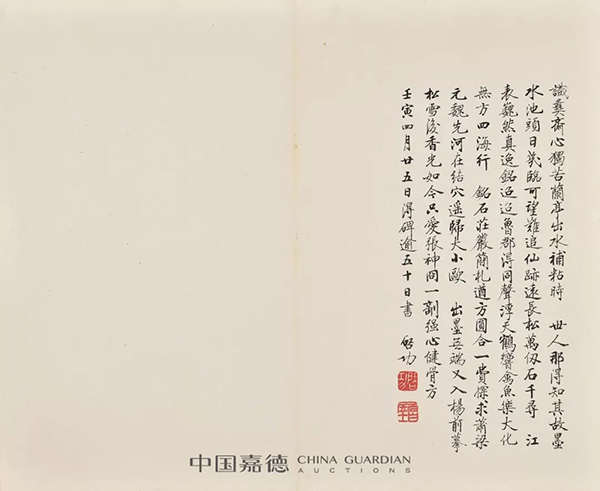 識彝齋心獨苦蘭亭出水補粘時　世人那得知其故墨
水池頭日幾臨可望難追仙跡遠長松萬仞石千尋　江
表巍然真逸銘迢迢魯郡得同聲浮天鶴響禽魚樂大化
無方四海行　銘石莊嚴簡札遒方圓合一費探求蕭梁
元魏先河在結穴遥歸大小歐　出墨無端又入楊前摹
松雪後香光如今只愛張神冏一劑强心健骨方
壬寅四月廿五日得碑逾五十日書　啟功
中国嘉德 CHINA GUARDIAN
AUCTIONS